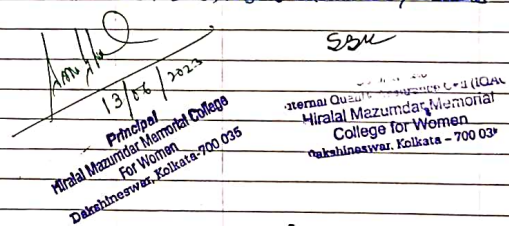 13/06/2023
Principal
Hiralal Mazumdar Memorial College
For Women
Dakshineswar, Kolkata-700 035
Internal
Hiralal Mazumdar Memorial
College for Women
Dakshineswar, Kolkata - 700 03